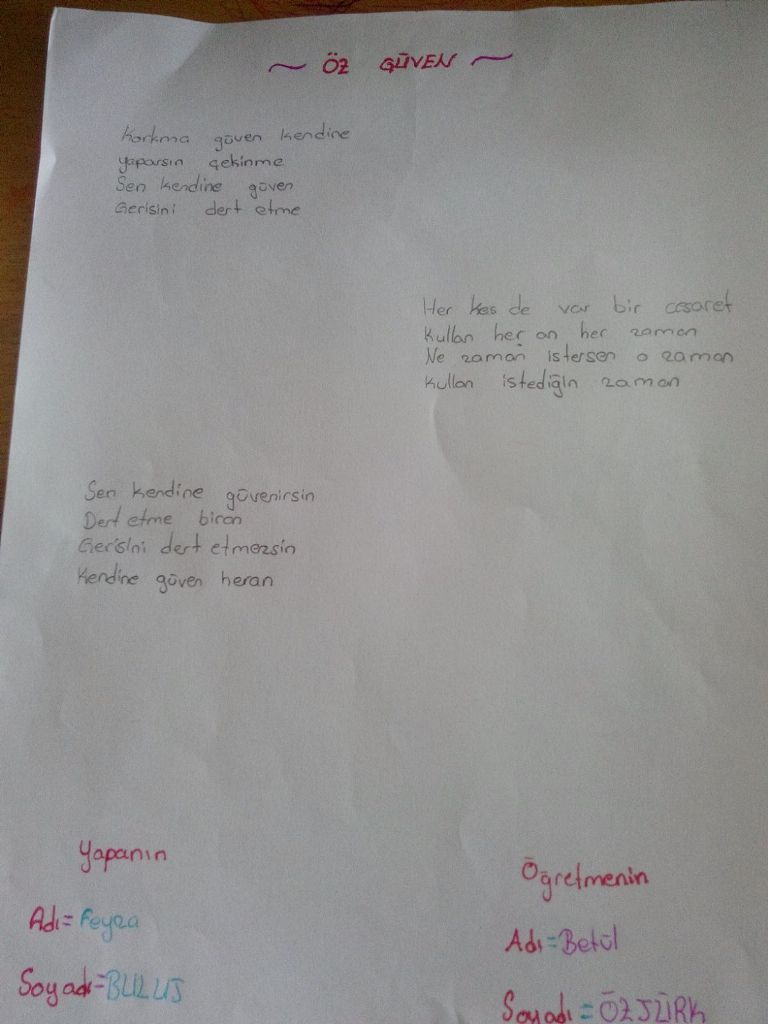 ~ ÖZ GÜVEN ~
Korkma güven kendine
yaparsın çekinme
Sen kendine güven
Gerisini dert etme
Her kes de var bir cesaret
Kullan her an her zaman
Ne zaman istersen o zaman
Kullan istediğin zaman
Sen kendine güvenirsin
Dert etme biran
Gerisini dert etmezsin
Kendine güven heran
Yapanın
Adı=Feyza
Soyadı=BULUŞ
Öğretmenin
Adı=Betül
Soyadı=ÖZTÜRK